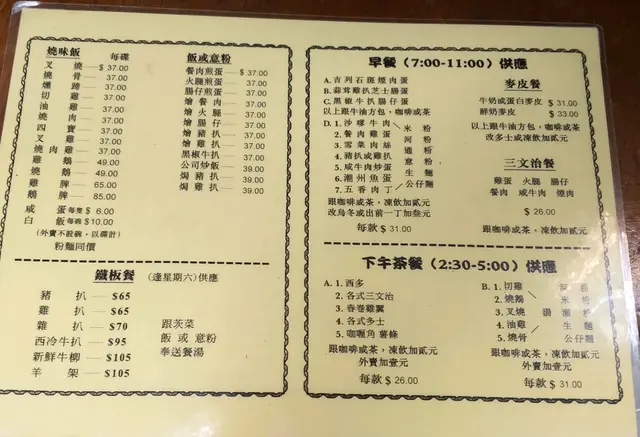 燒味飯 每碟
叉燒 $ 37.00
燒骨 37.00
燻蹄 37.00
切雞 37.00
油雞 37.00
燒肉 37.00
四寶 37.00
叉雞 37.00
燒肉雞 40.00
雞鵝 49.00
燒鵝 49.00
雞脾 65.00
鵝脾 85.00
咸蛋 每隻 $ 6.00
白飯 每碗 $10.00
(外賣不設碗,以碟計)
粉麵同價
飯或意粉
餐肉煎蛋 $ 37.00
火腿煎蛋 37.00
腸仔煎蛋 37.00
燴餐肉 37.00
燴火腿 37.00
燴腸仔 37.00
燴豬扒 37.00
燴雞扒 37.00
黑椒牛扒 37.00
公司炒飯 39.00
焗豬扒 39.00
焗雞扒 39.00
鐵板餐 (逢星期六)供應
豬扒 $65
雞扒 $65
雜扒 $70
西冷牛扒 $95
新鮮牛柳 $105
羊架 $105
跟茨菜
飯或意粉
奉送餐湯
早餐 (7:00-11:00) 供應
A. 吉列石斑煙肉蛋
B. 蒜茸雞扒芝士腸蛋
C. 黑椒牛扒腸仔蛋
以上跟牛油方包,咖啡或茶
D. 1. 沙嗲牛肉 米粉
2. 餐肉雞蛋 河粉
3. 雪菜肉絲 通粉
4. 豬扒或雞扒 意粉
5. 咸牛肉炒蛋 生麵
6. 潮州魚蛋 公仔麵
7. 五香肉丁
跟咖啡或茶,凍飲加貳元
改烏冬或出前一丁加叁元
每款 $ 31.00
麥皮餐
牛奶或蛋白麥皮 $ 31.00
鮮奶麥皮 $ 33.00
以上跟牛油方包,咖啡或茶
改多士或凍飲加貳元
三文治餐
雞蛋 火腿 腸仔
餐肉 咸牛肉 煙肉
$ 26.00
跟咖啡或茶,凍飲加貳元
下午茶餐 (2:30-5:00) 供應
A. 1. 西多
2. 各式三文治
3. 春卷雞翼
4. 各式多士
5. 咖喱角薯條
跟咖啡或茶,凍飲加貳元
外賣加壹元
每款 $ 26.00
B. 1. 切雞 河粉
2. 燒鵝 米粉
3. 叉燒 湯 瀨粉
4. 油雞 生麵
5. 燒骨 公仔麵
跟咖啡或茶,凍飲加貳元
外賣加壹元
每款 $ 31.00